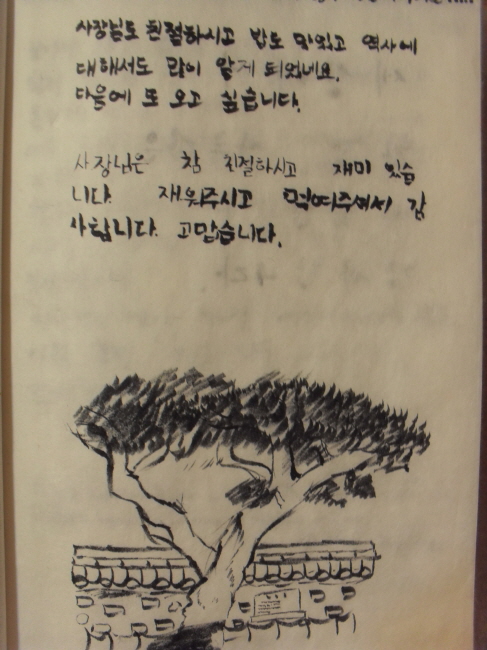 사장님도 친절하시고 밥도 맛있고 역사에
대해서도 많이 알게 되었네요.
다음에 또 오고 싶습니다.
사장님은 참 친절하시고 재미 있습
니다. 재워주시고 먹여주셔서 감
사합니다. 고맙습니다.